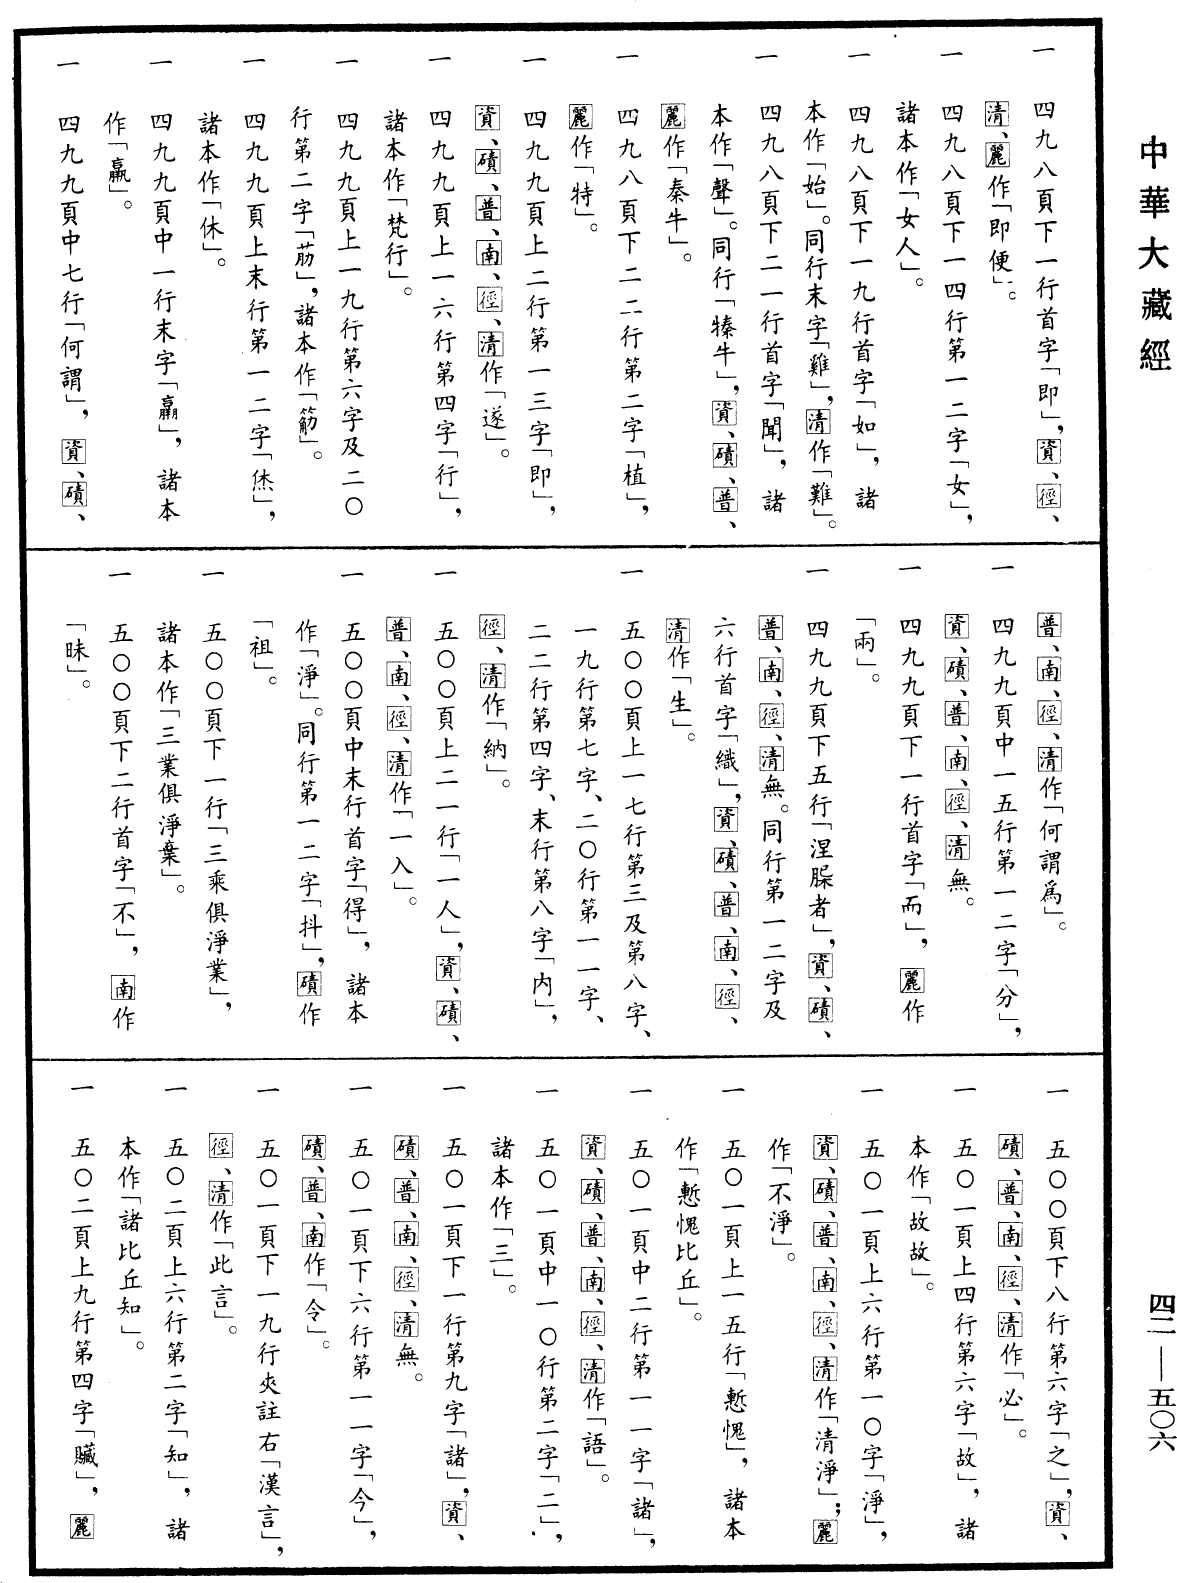 中華大藏經
四二—五〇六
一 四九八頁下一行首字「即」，資、徑、
清、麗作「即便」。
一 四九八頁下一四行第一二字「女」，
諸本作「女人」。
一 四九八頁下一九行首字「如」，諸
本作「始」。同行末字「雞」，清作「難」。
一 四九八頁下二一行首字「聞」，諸
本作「聲」。同行「㮈牛」，資、磧、普、
麗作「秦牛」。
一 四九八頁下二二行第二字「植」，
麗作「特」。
一 四九九頁上二行第一三字「即」，
資、磧、普、南、徑、清作「遂」。
一 四九九頁上一六行第四字「行」，
諸本作「梵行」。
一 四九九頁上一九行第六字及二〇
行第二字「莇」，諸本作「筯」。
一 四九九頁上末行第一二字「烋」，
諸本作「休」。
一 四九九頁中一行末字「羸」，諸本
作「羸」。
一 四九九頁中七行「何謂」，資、磧、
普、南、徑、清作「何謂爲」。
一 四九九頁中一五行第一二字「分」，
資、磧、普、南、徑、清無。
一 四九九頁下一行首字「而」，麗作
「兩」。
一 四九九頁下五行「涅臊者」，資、磧、
普、南、徑、清無。同行第一二字及
六行首字「織」，資、磧、普、南、徑、
清作「生」。
一 五〇〇頁上一七行第三及第八字、
一九行第七字、二〇行第一一字、
二二行第四字、末行第八字「内」，
徑、清作「納」。
一 五〇〇頁上二一行「一人」，資、磧、
普、南、徑、清作「一入」。
一 五〇〇頁中末行首字「得」，諸本
作「淨」。同行第一二字「抖」，磧作
「祖」。
一 五〇〇頁下一行「三乘俱淨業」，
諸本作「三業俱淨棄」。
一 五〇〇頁下二行首字「不」，南作
「昧」。
一 五〇〇頁下八行第六字「之」，資、
磧、普、南、徑、清作「必」。
一 五〇一頁上四行第六字「故」，諸
本作「故故」。
一 五〇一頁上六行第一〇字「淨」，
資、磧、普、南、徑、清作「清淨」；麗
作「不淨」。
一 五〇一頁上一五行「慙愧」，諸本
作「慙愧比丘」。
一 五〇一頁中二行第一一字「諸」，
資、磧、普、南、徑、清作「語」。
一 五〇一頁中一〇行第二字「二」，
諸本作「三」。
一 五〇一頁下一行第九字「諸」，資、
磧、普、南、徑、清無。
一 五〇一頁下六行第一一字「今」，
磧、普、南作「令」。
一 五〇一頁下一九行夾註右「漢言」，
徑、清作「此言」。
一 五〇二頁上六行第二字「知」，諸
本作「諸比丘知」。
一 五〇二頁上九行第四字「贓」，麗